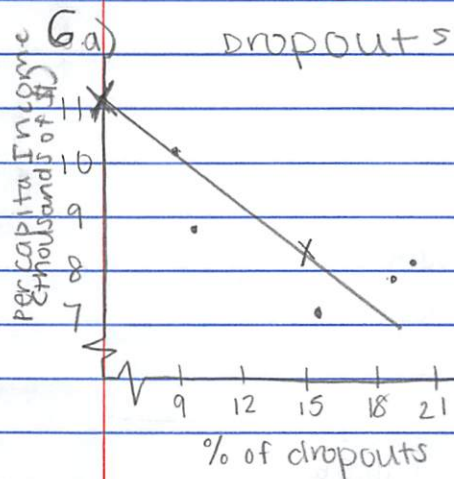 6.a) Dropouts
per capita Income
(thousands of $)
11
10
9
8
7
9 12 15 18 21
% of dropouts